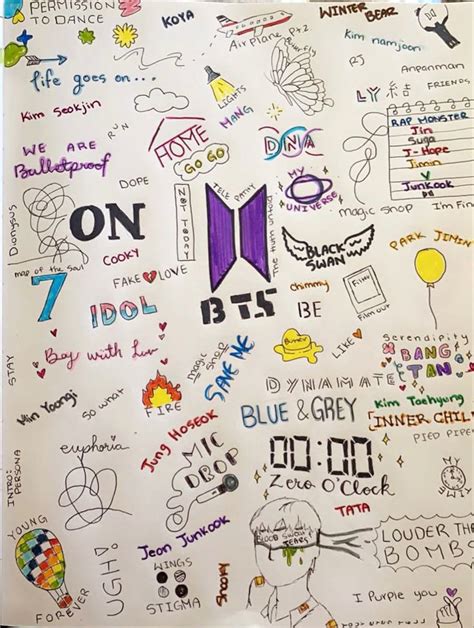 PERMISSION
TO DANCE
KOYA
AIRPLANE Pt2
WINTER BEAR
Kim namjoon
RJ
Anpanman
life goes on...
Butterfly
LIGHTS
LY 結
FRIENDS
Kim Seokjin
RUN
HOME
MANG
RAP MONSTER
Jin
Suga
J-Hope
Jimin
V
Junkook
WE ARE
Bulletproof
GO GO
DNA
DOPE
NOT TODAY
TELE PATHY
MY
UNIVERSE
magic shop
Im Fine
Dionysus
ON
The truth untold
BLACK
SWAN
PARK JIMIN
COOKY
map of the soul
7
FAKE LOVE
IDOL
BTS
chimmy
BE
Film out
Butter
LIKE
Serendipity
BANG
TAN
STAY
Boy with Luv
magic shop
SAVE ME
DYNAMATE
Min Yoongi
So what
FIRE
BLUE & GREY
Kim Taehyung
[INNER CHILD
PIED PIPER
euphoria
Jung Hoseok
MIC
DROP
00:00
Zero O'Clock
MY TIME
INTRO:
PERSONA
TATA
YOUNG
FOREVER
UGH!
Jeon Junkook
WINGS
STIGMA
Shooky
BLOOD SWEAT
TEARS
LOUDER THE
BOMB
I Purple you